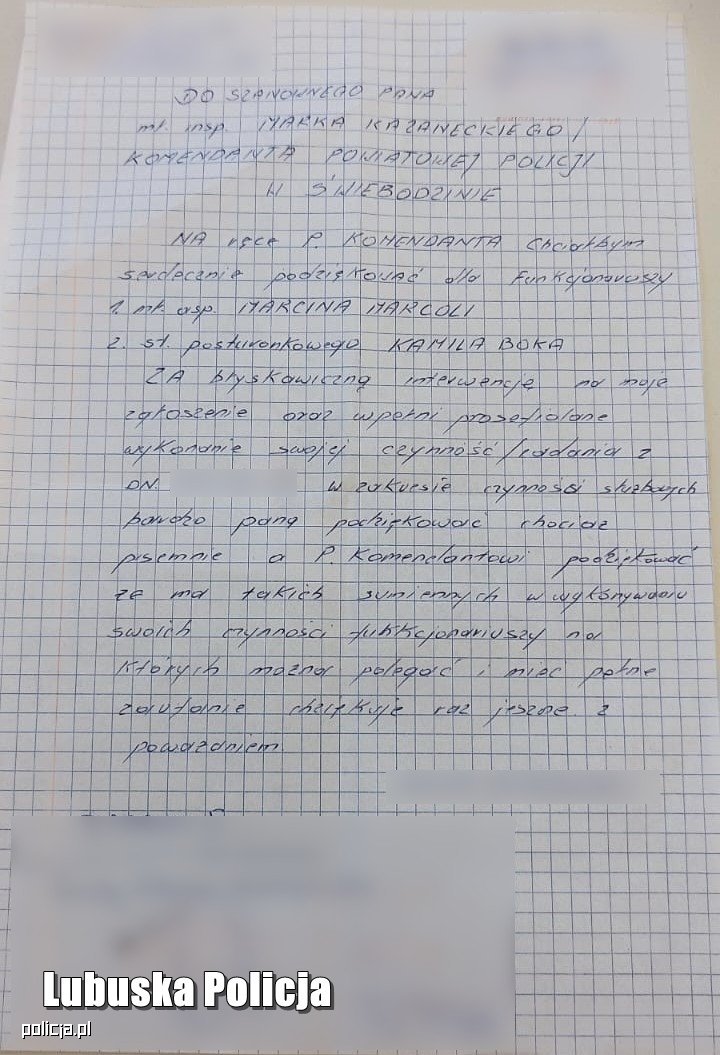 DO SZANOWNEGO PANA
mł. insp. MARKA KAZANECKIEGO /
KOMENDANTA POWIATOWEJ POLICJI
W ŚWIEBODZINIE
NA ręce P. KOMENDANTA Chciałbym
serdecznie podziękować dla Funkcjonariuszy
1. mł. asp. MARCINA MARCOLI
2. st. posturonkowego KAMILA BOKA
ZA błyskawiczną interwencję na moje
zgłoszenie oraz wpełni
wykonanie swojej czynność/zadania z
DN. w zakresie czynności służbowych
bardzo pana podziękować chociaż
pisemnie a P. Komendantowi podziękować
że ma takich sumiennych w wykonywaniu
swoich czynności funkcjonariuszy na
których można polegać i mieć pełne
zaufanie dziękuję raz jeszcze z
powazaniem
Lubuska Policja
policja.pl